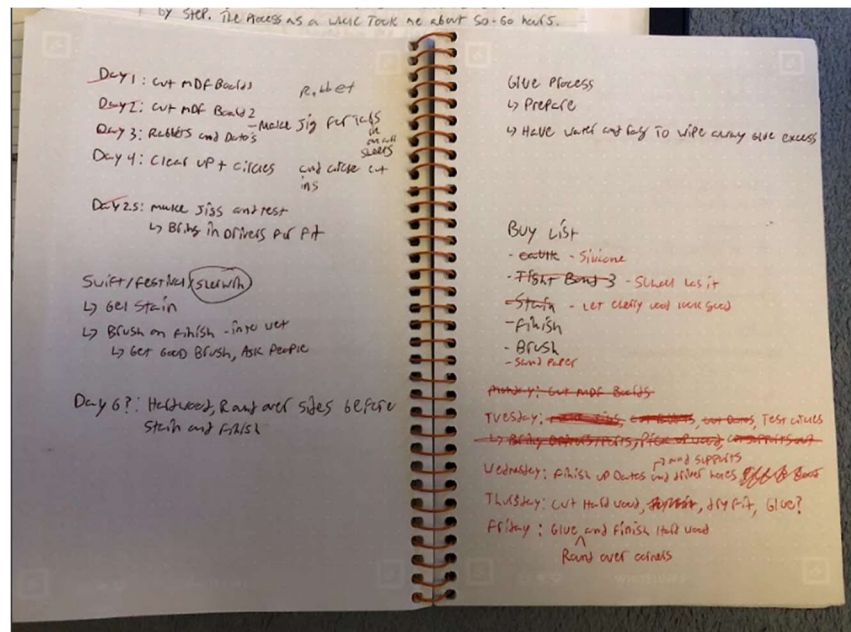 by step. The Process as a whole Took me about 50-60 hours.
Day 1: Cut MDF Boards
Rabbet
Day 2: Cut MDF Board 2
- Make Jig For Tabs
Day 3: Rabbets and Dato's
Day 4: Clear up + Circles and circle cut
ins
Day 2.5: Make Jigs and test
↳ Bring in Drivers For Fit
Swift/Festival/Sherwin
↳ Gel Stain
↳ Brush on Finish - into wet
↳ Get Good Brush, Ask People
Day 6?: Hardwood, Round over sides before
Stain and Finish
Glue Process
↳ Prepare
↳ Have water and Rag To wipe away Glue excess
Buy List
- Caulk - Silicone
- Tight Bond 3 - School has it
- Stain - Let cherry wood look good
- Finish
- Brush
- Sand Paper
Monday: Cut MDF Boards
Tuesday: Test circles
↳ Bring Drivers/Ports, Pick up wood
and supports
Wednesday: Finish up Datos and driver holes
Thursday: Cut Hard wood, dry fit, Glue?
Friday: Glue and Finish Hard wood
Round over corners